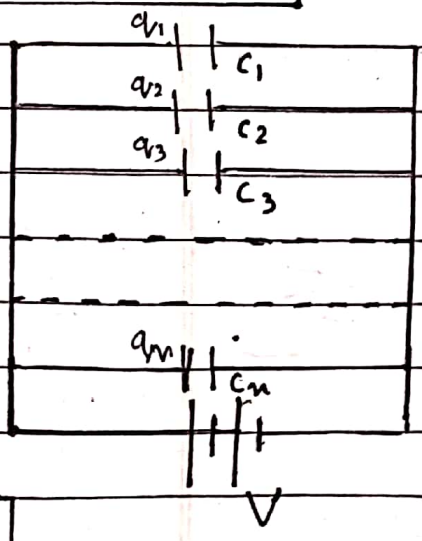 q1
C1
q2
C2
q3
C3
qn
Cn
V